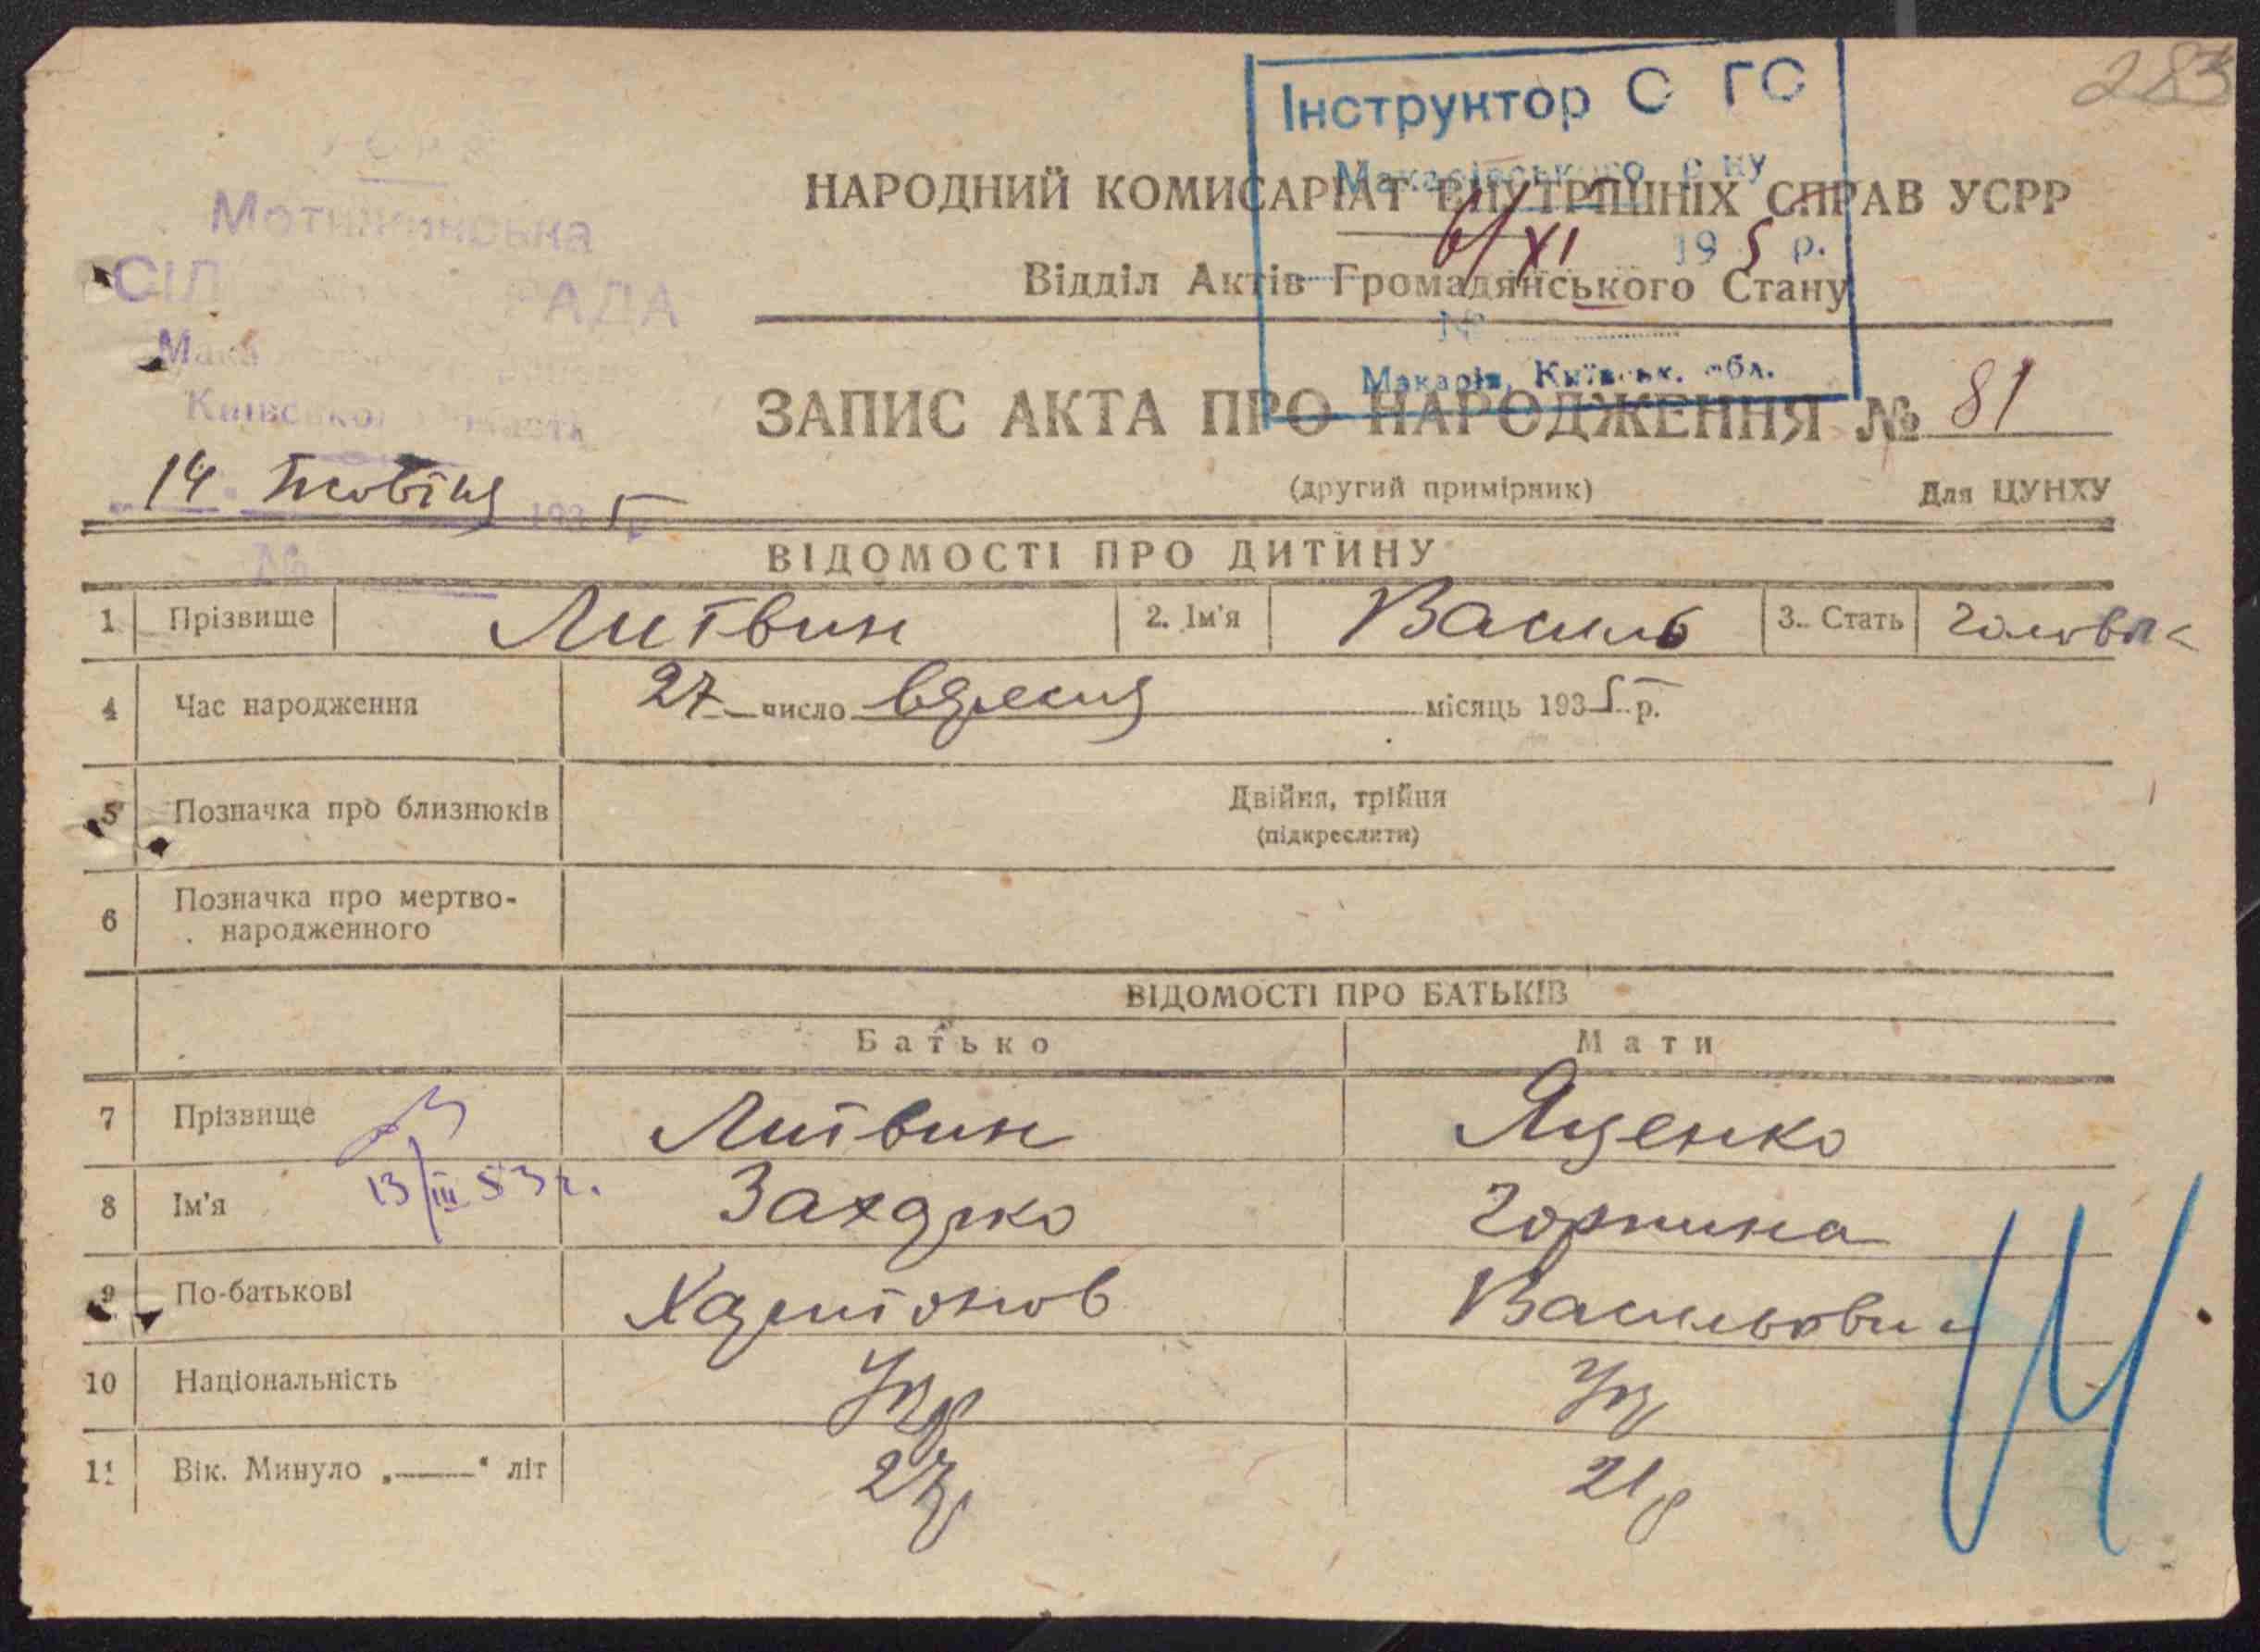 283
Інструктор С ГС
Макарівського р ну
6/XI 1935 р.
№
Макарів, Київськ. обл.
УСРР
Мотижинська
СІЛ РАДА
Мака
Київської області
14 жовтня 1935 р.
№
НАРОДНИЙ КОМИСАРІАТ ВНУТРІШНІХ СПРАВ УСРР
Відділ Актів Громадянського Стану
ЗАПИС АКТА ПРО НАРОДЖЕННЯ № 81
(другий примірник) Для ЦУНХУ
ВІДОМОСТІ ПРО ДИТИНУ
1 Прізвище Литвин 2. Ім'я Василь 3. Стать Головік
4 Час народження 27 число вересня місяць 1935 р.
5 Позначка про близнюків Двійня, трійня
(підкреслити)
6 Позначка про мертво-
народженного
ВІДОМОСТІ ПРО БАТЬКІВ
Батько Мати
7 Прізвище Литвин Яценко
8 Ім'я 13/III 53 г. Захарко Горпина
9 По-батькові Харитонов Васильовни
10 Національність Укр Укр
11 Вік. Минуло „——“ літ 27 р 21 р